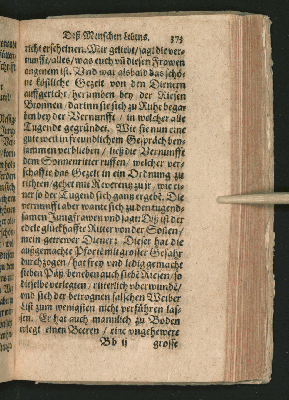 Deß Menschen lebens. 373
richt erscheinen. Mir geliebt / sagt die ver-
nunfft / alles / was euch vñ diesen Frowen
angenem ist. Vnd war alsbald das schö-
ne köstliche Gezelt von den Dienern
auffgericht / herumben bey der Riesen
Bronnen / darinn sie sich zu Ruhe began
ben bey der Vernunfft / in welcher alle
Tugende gegründet. Wie sie nun eine
gute weil in freundlichem Gespräch bey-
sammen verblieben / ließ die Vernunfft
dem Sonnenritter ruffen / welcher ver-
schaffte das Gezelt in ein Ordnung zu
richten / gehet mit Reverentz zu jr / wie ei-
ner so der Tugend sich gantz ergebt. Die
vernunfft aber wante sich zu den tugend-
samen Jungfrawen vnd sagt: Diß ist der
edele glückhaffte Ritter von der Soñen /
mein getrewer Diener: Dieser hat die
außgemachte Pforte mit grosser Gefahr
durchzogen / hat frey vnd ledig gemacht
sieben Päß / beneben auch siebē Riesen / so
dieselbe verlegten / ritterlich vberwundē /
vnd sich der betrognen falschen Weiber
List zum wenigsten nicht verführen las-
sen. Er hat auch mannlich zu Boden
erlegt einen Beeren / eine vngehewre
Bb ij grosse